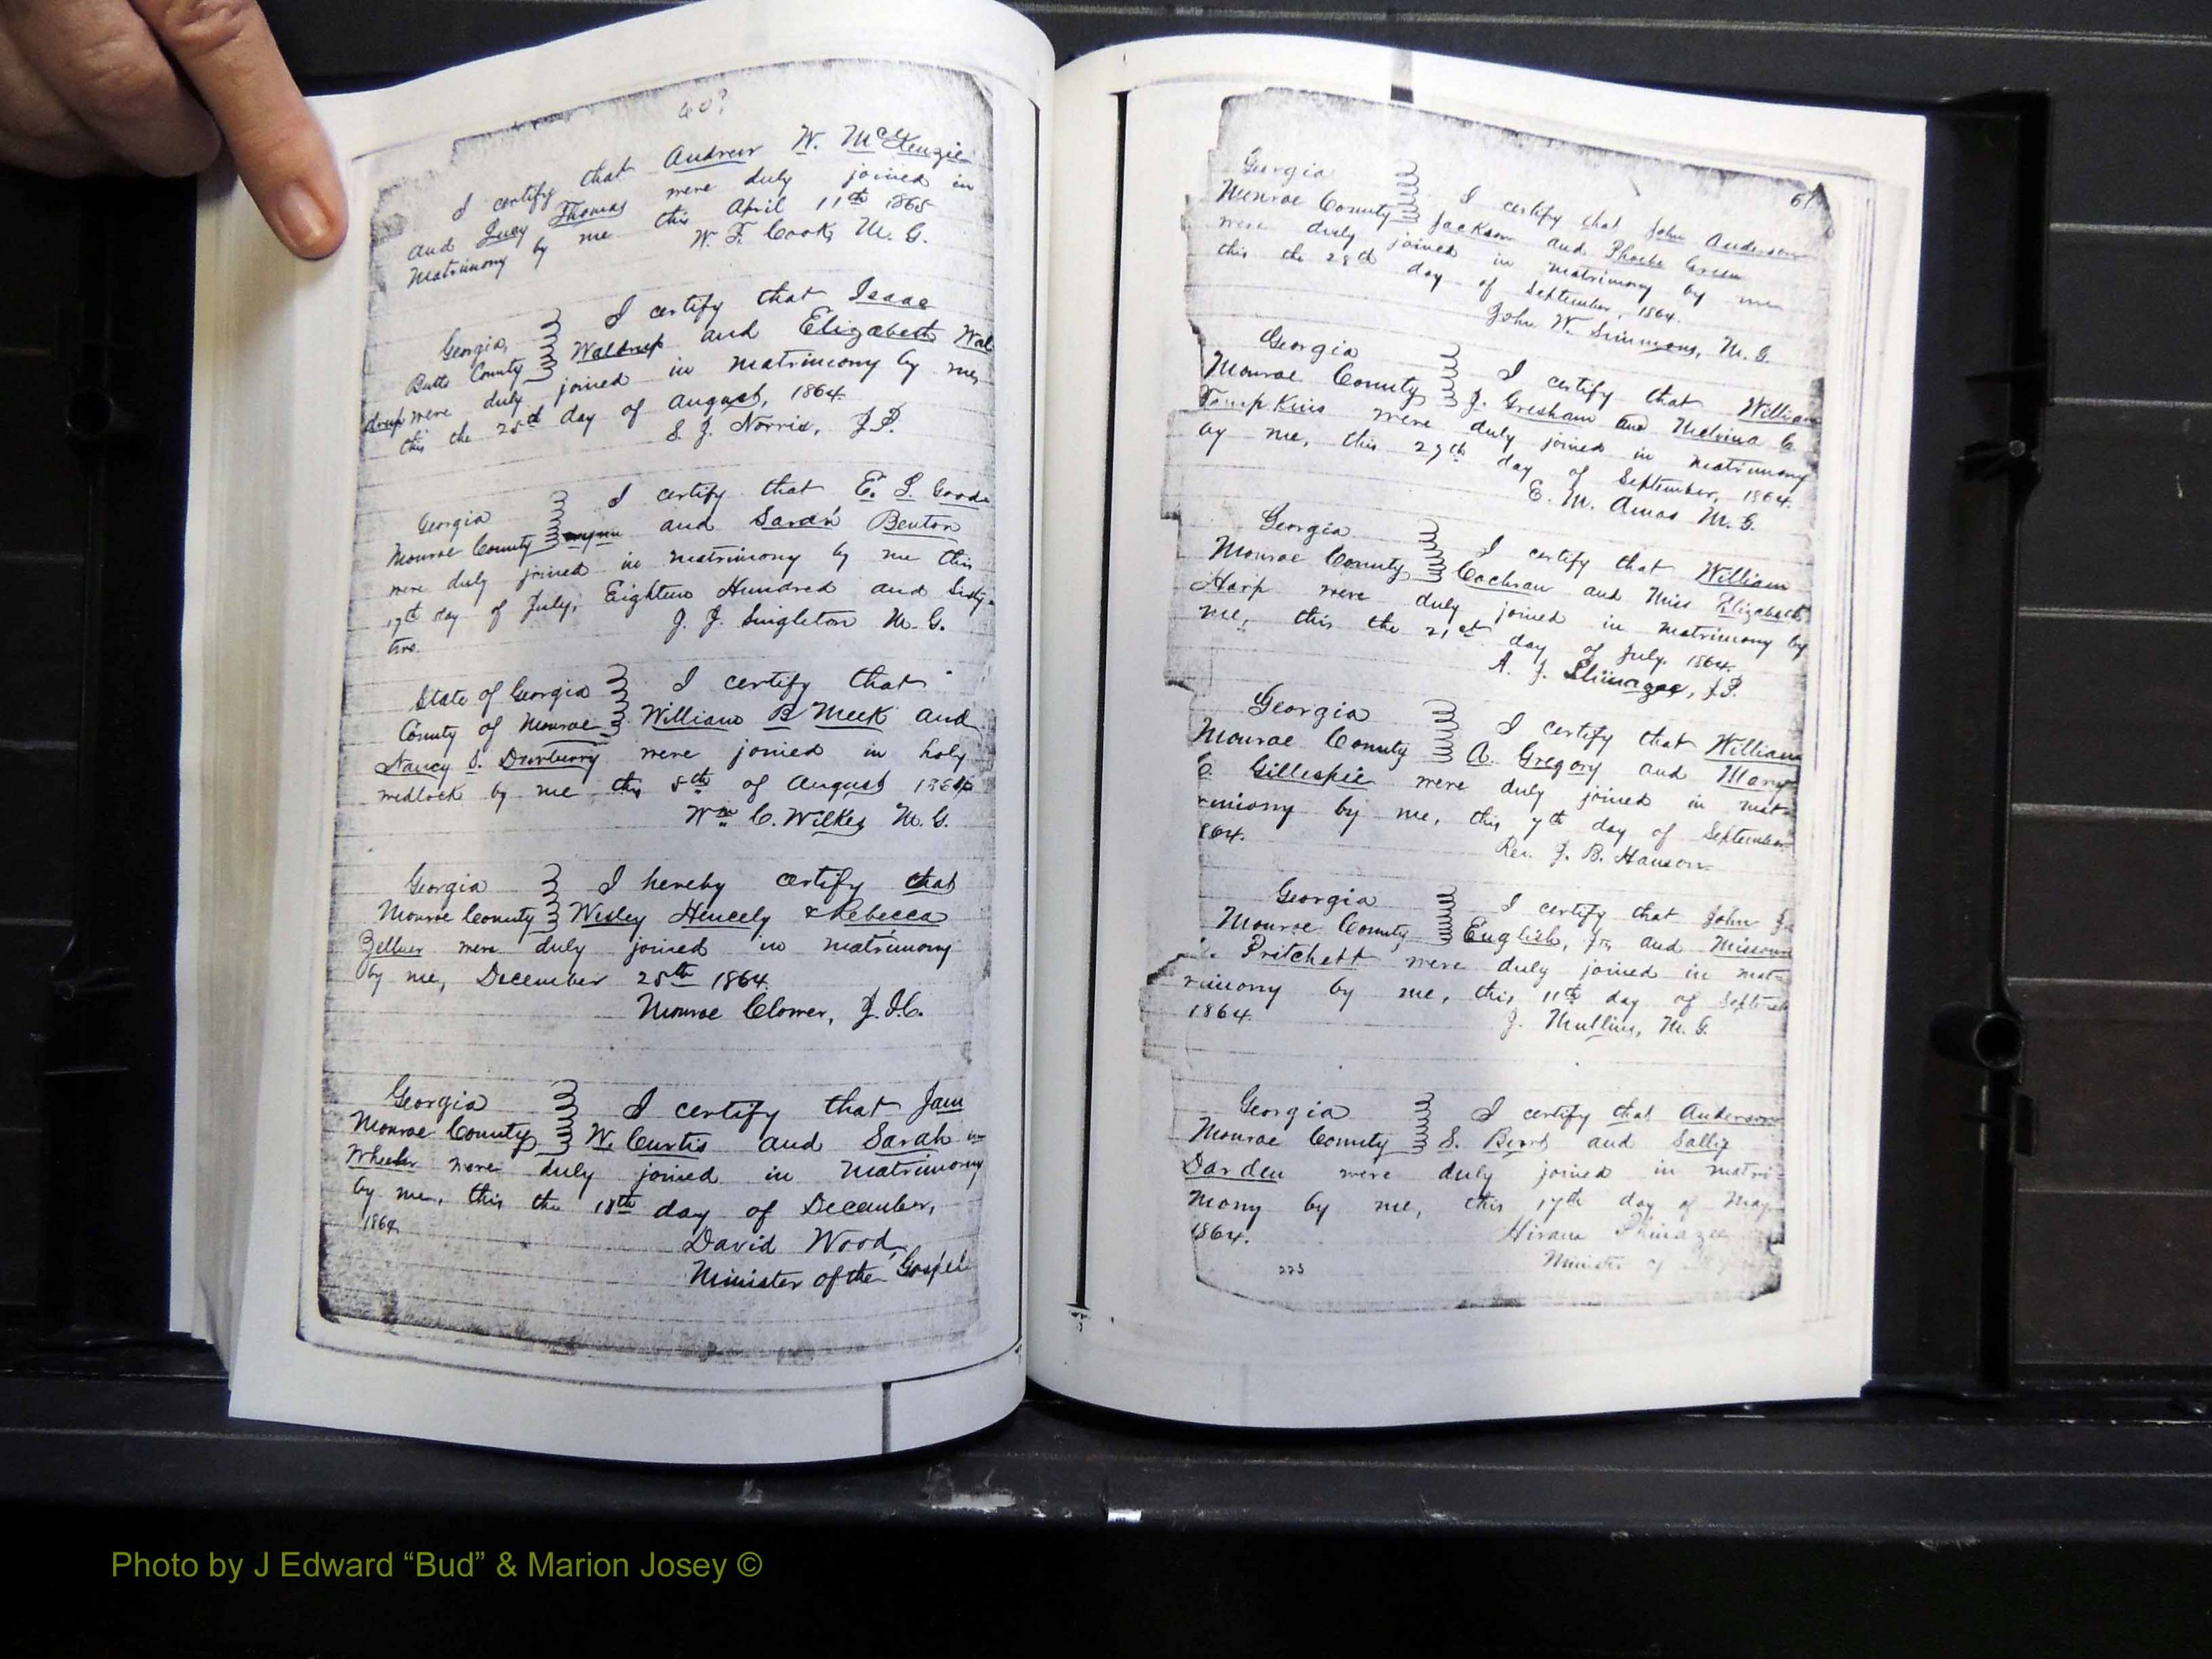 60?
I certify that Andrew W. McKenzie
and Lucy Thomas were duly joined in
Matrimony by me this April 11th 1865
W. F. Cook, M. G.
Georgia, I certify that Isaac
Butts County Waldrup and Elizabeth Wal
drup were duly joined in matrimony by me,
this the 25th day of August, 1864.
S. J. Norris, J.P.
Georgia I certify that E. S. Good
Monroe County and Sarah Benton
were duly joined in matrimony by me this
17th day of July, Eighteen Hundred and Sixty-
J. J. Singleton M. G.
State of Georgia I certify that
County of Monroe William B Meek and
Nancy S. were joined in holy
wedlock by me this 5th of August 1864
Wm C. Wilkes M. G.
Georgia I hereby certify that
Monroe County Wesley Hencely & Rebecca
Zellner were duly joined in matrimony
by me, December 25th 1864.
Monroe Clower, J.I.C.
Georgia I certify that Jam
Monroe County W. Curtis and Sarah
Wheeler were duly joined in matrimony
by me, this the 18th day of December,
1864
David Wood,
Minister of the Gospel
61
Georgia I certify that John Anderson
Monroe County Jackson and Phoebe Green
were duly joined in matrimony by me
this the 28th day of September, 1864.
John W. Simmons, M. G.
Georgia I certify that William
Monroe County J. Gresham and Melvina C.
Tompkins were duly joined in matrimony
by me, this 29th day of September, 1864.
E. M. Amos M. G.
Georgia I certify that William
Monroe County Cochran and Miss Elizabeth
Harp were duly joined in matrimony by
me, this the 21st day of July. 1864.
A. J. , J.P.
Georgia I certify that William
Monroe County A. Gregory and Mary
C. Gillespie were duly joined in mat-
rimony by me, this 7th day of September
864.
Rev. J. B. Hanson
Georgia I certify that John J.
Monroe County English, Jr, and Missouri
Pritchett were duly joined in mat-
rimony by me, this 11th day of Septemb
1864.
J. Mullins, M. G.
Georgia I certify that Anderson
Monroe County S. and Sallie
Darden were duly joined in matri-
mony by me, this 17th day of May
1864.
Hiram Phinazee
Minister of
225
Photo by J Edward “Bud” & Marion Josey ©